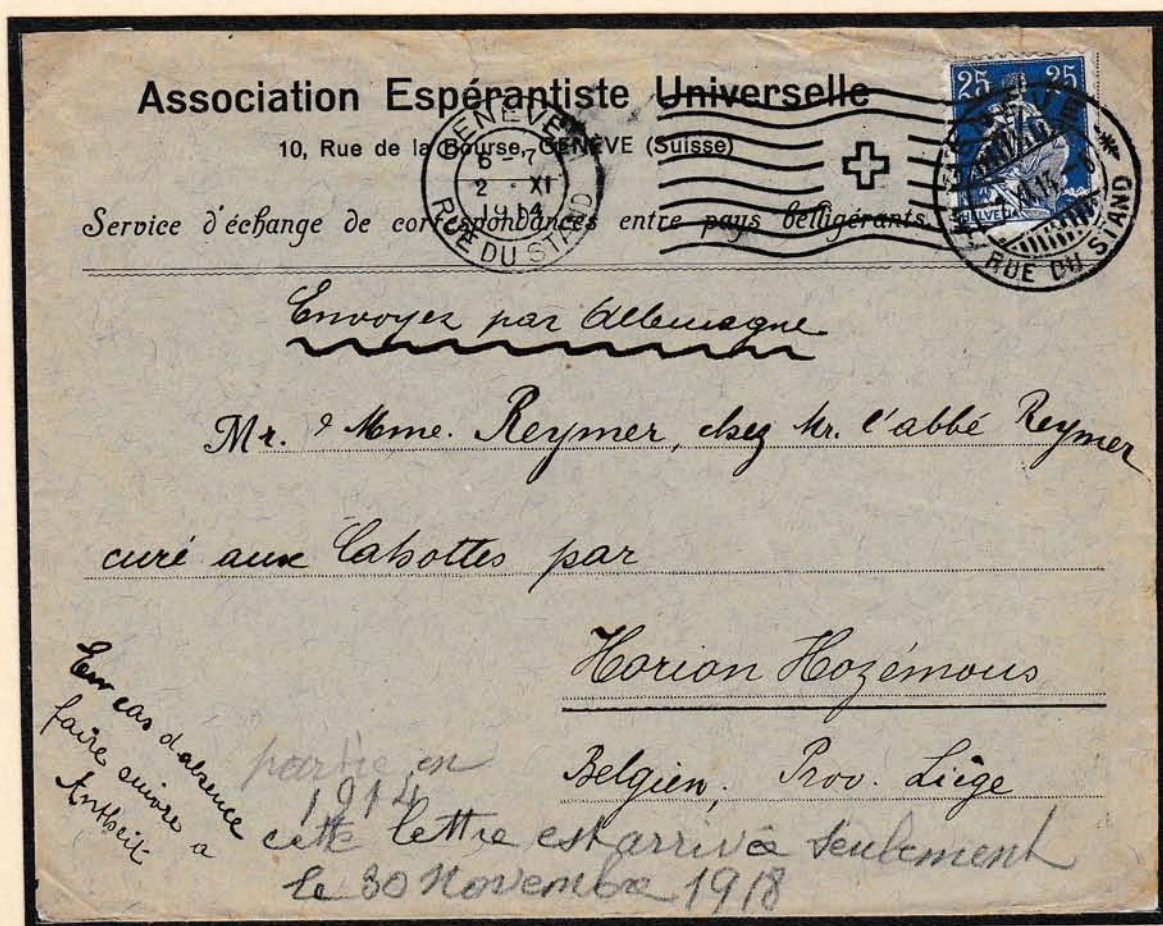 Association Espérantiste Universelle
10, Rue de la Bourse, GENÈVE (Suisse)
Service d'échange de correspondances entre pays belligérants.
25 25
HELVETIA
GENÈVE
6-7
2 · XI
1914
RUE DU STAND
GENÈVE
XI.14.-6
RUE DU STAND
Envoyez par Allemagne
Mr. & Mme. Reymer, chez Mr. l'abbé Reymer
curé aux Cahottes par
Horion Hozémous
Belgien, Prov. Liège
En cas d'absence
faire suivre a
Antheit
partie en
1914
cette lettre est arrivée seulement
le 30 Novembre 1918